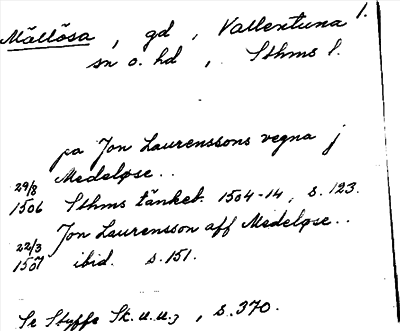 Mällösa, gd, Vallentuna 1.
sn o. hd, Sthms l.
pa Jon Laurenssons vegna j
Medeløse..
29/8
1506 Sthms tänkeb. 1504-14, s. 123.
Jon Laurensson aff Medeløse..
22/3
1507 ibid. s. 151.
Se Styffe Sk. u. u.3, s. 370.